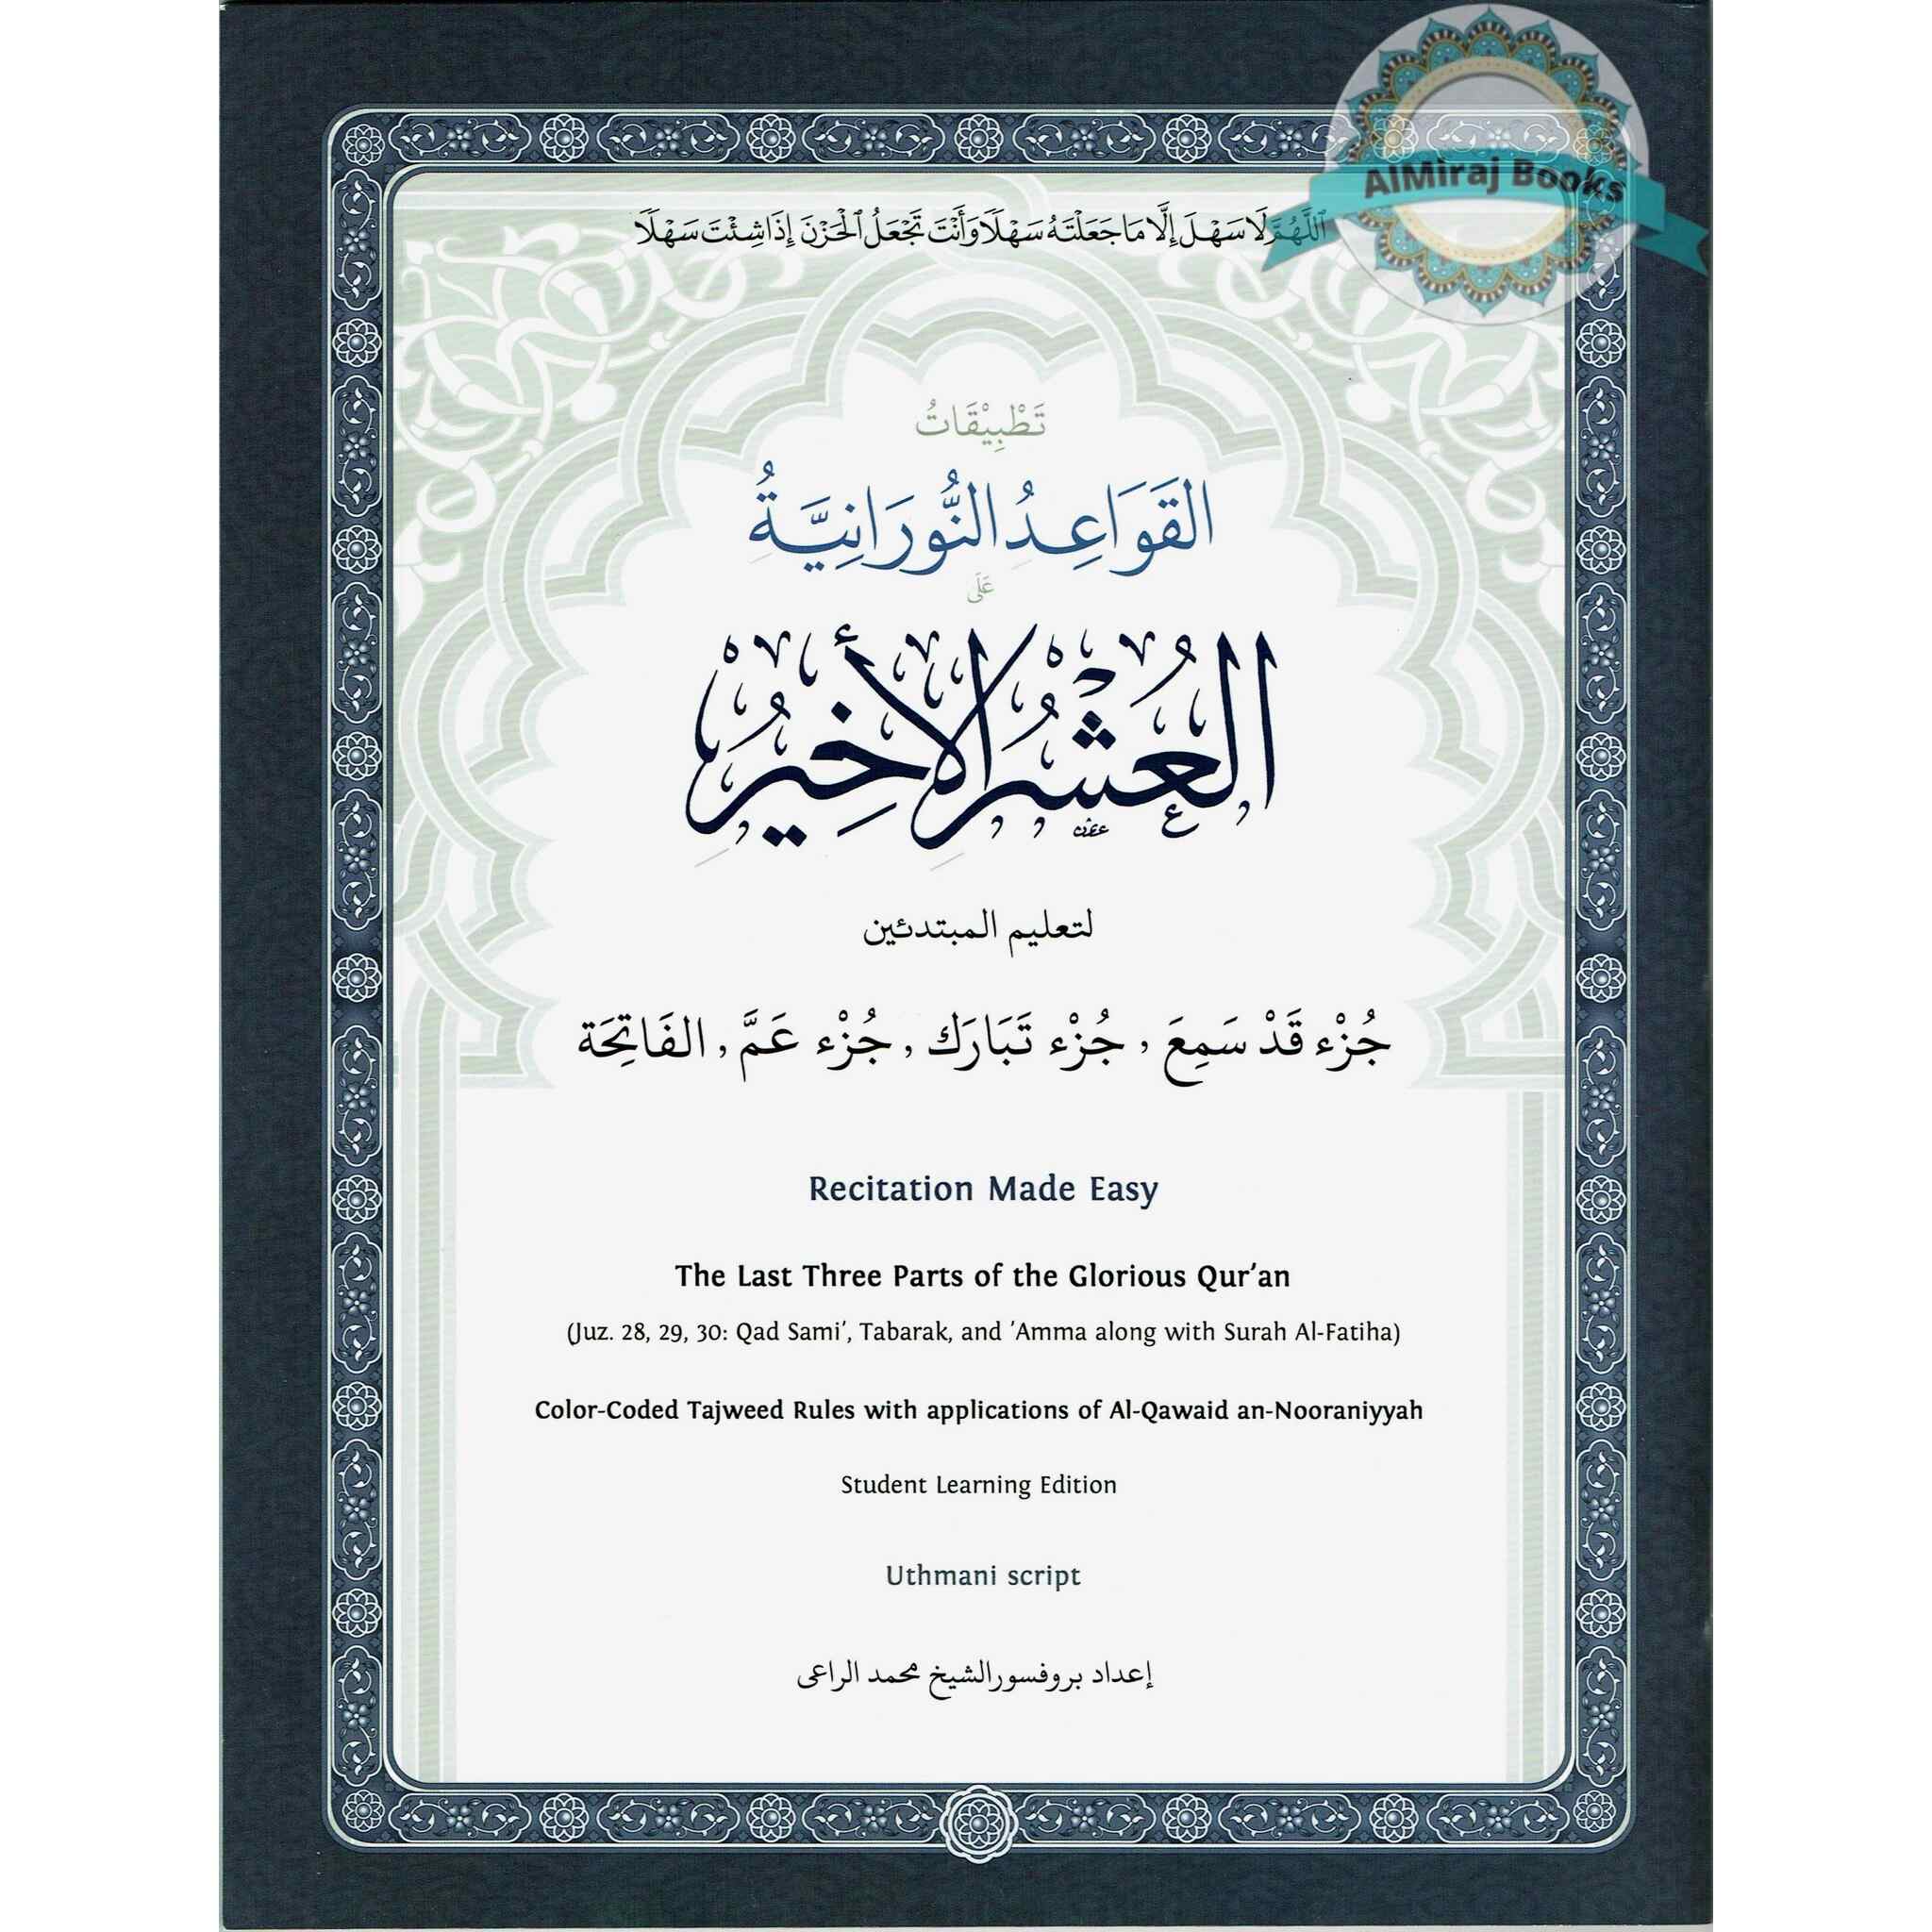 AlMiraj Books
اللَّهُمَّ لَا سَهْلَ إِلَّا مَا جَعَلْتَهُ سَهْلَا وَأَنْتَ تَجْعَلُ الْحَزْنَ إِذَا شِئْتَ سَهْلَا
تَطْبِيْقَاتُ
القَوَاعِدُ النُّورَانِيَّةُ
عَلَى
العُشْرُ الأَخِيرُ
لتعليم المبتدئين
جُزْء قَدْ سَمِعَ , جُزْء تَبَارَك , جُزْء عَمَّ , الفَاتِحَة
Recitation Made Easy
The Last Three Parts of the Glorious Qur’an
(Juz. 28, 29, 30: Qad Sami’, Tabarak, and ’Amma along with Surah Al-Fatiha)
Color-Coded Tajweed Rules with applications of Al-Qawaid an-Nooraniyyah
Student Learning Edition
Uthmani script
إعداد بروفسور الشيخ محمد الراعى